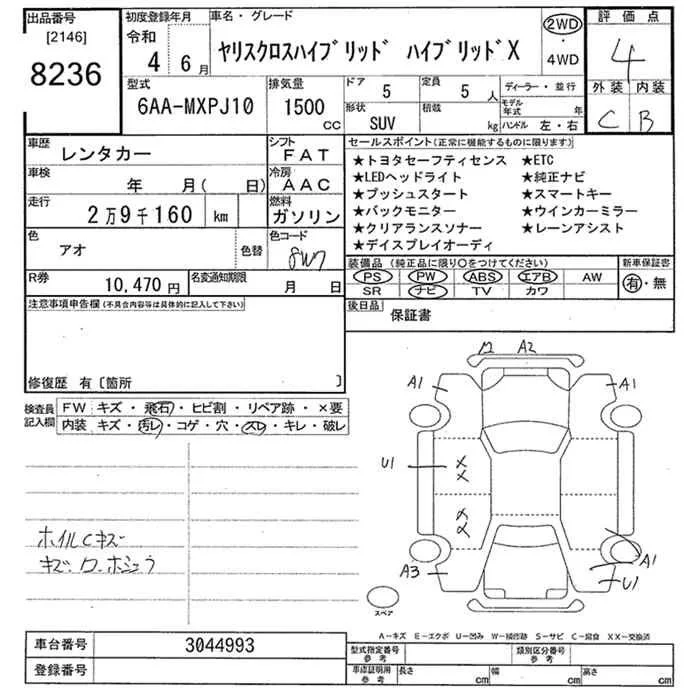 出品番号
[2146]
8236
初度登録年月
令和
4 6月
車名・グレード
ヤリスクロスハイブリッド ハイブリッドX
2WD
・
4WD
評価点
4
外装 内装
C B
型式
6AA-MXPJ10
排気量
1500
CC
ドア
5
定員
5人
形状
SUV
積載
kg
ディーラー・並行
モデル年式 年
ハンドル 左・右
車歴
レンタカー
シフト
FAT
車検
年 月( 日)
冷房
AAC
走行
2万9千160 km
燃料
ガソリン
色
アオ
色替
色コード
8W7
R券
10,470円
名変通知期限
月 日
セールスポイント(正常に機能するものに限ります)
★トヨタセーフティセンス ★ETC
★LEDヘッドライト ★純正ナビ
★プッシュスタート ★スマートキー
★バックモニター ★ウインカーミラー
★クリアランスソナー ★レーンアシスト
★デイスプレイオーディ
装備品(純正品に限り○をつけてください)
PS PW ABS エアB AW
SR ナビ TV カワ
新車保証書
有・無
後日品
保証書
注意事項申告欄(不具合内容等は具体的に記入して下さい)
修復歴 有〔箇所 〕
検査員記入欄
FW キズ・飛石・ヒビ割・リペア跡・×要
内装 キズ・汚レ・コゲ・穴・スレ・キレ・破レ
ホイルCキズ
A2
A1 A1
U1
××
××
A3
A1
U1
スペア
A-キズ E-エクボ U-凹み W-補修跡 S-サビ C-腐食 XX-交換済
車台番号
3044993
登録番号
型式指定番号
参考
類別区分番号
参考
車庫証明用
参考
長さ cm
幅 cm
高さ cm